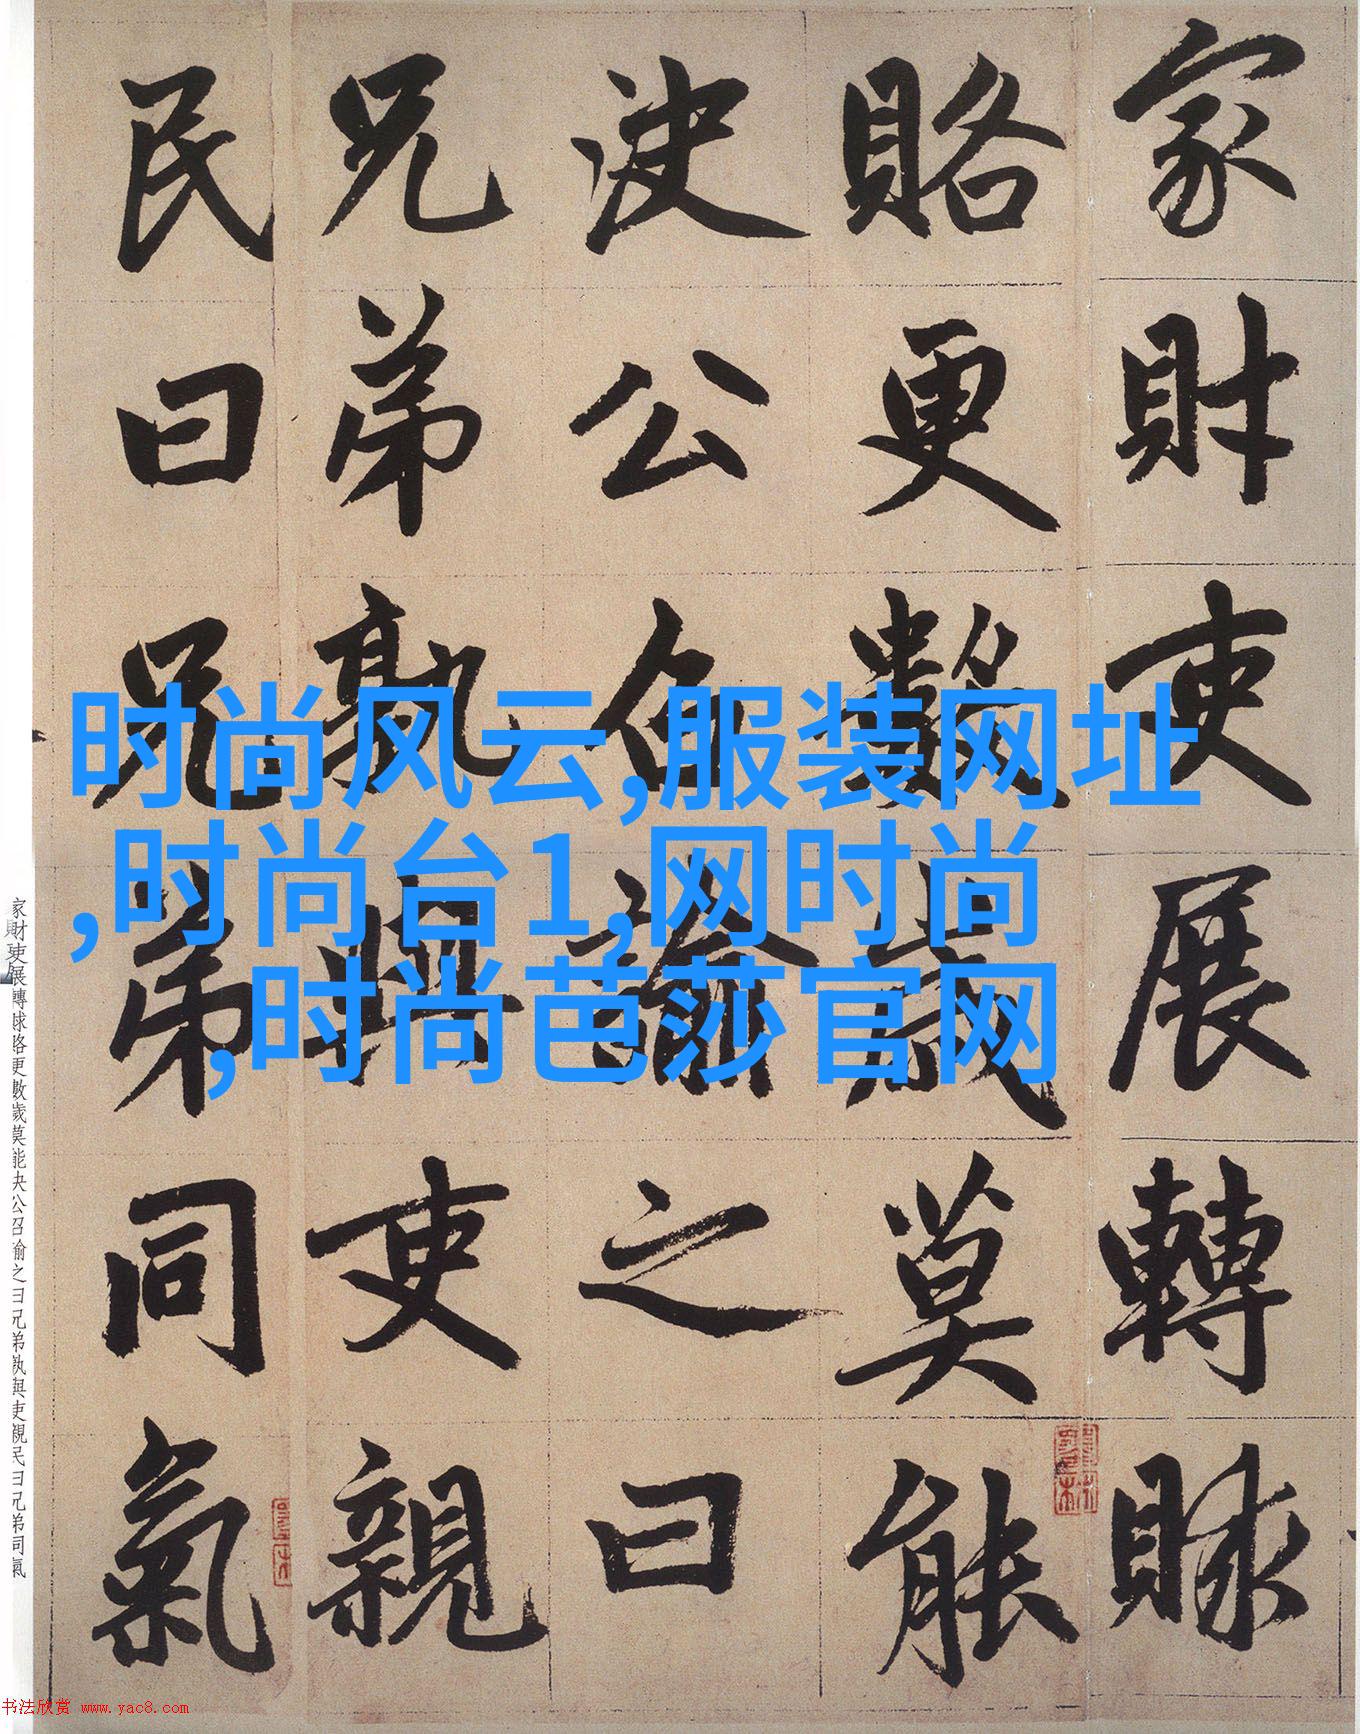 家財吏展轉賕
賂更數歲莫能
決公召諭之曰
兄弟孰與吏親
民曰兄弟同氣
时尚风云,服装网址
,时尚台1,网时尚
,时尚芭莎官网
家財吏展轉賕賂更數歲莫能決公召諭之曰兄弟孰與吏親民曰兄弟同氣
书法欣赏 www.yac8.com